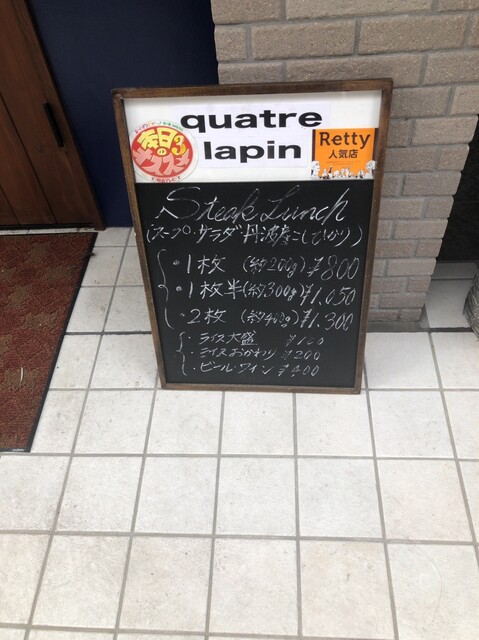 quatre
lapin
Retty
人気店
Steak Lunch
(スープ・サラダ 丹波産こしひかり)
・1枚 (約200g) ¥800
・1枚半(約300g)¥1,050
・2枚 (約400g) ¥1,300
・ライス大盛 ¥100
・ライスおかわり ¥200
・ビール・ワイン ¥400